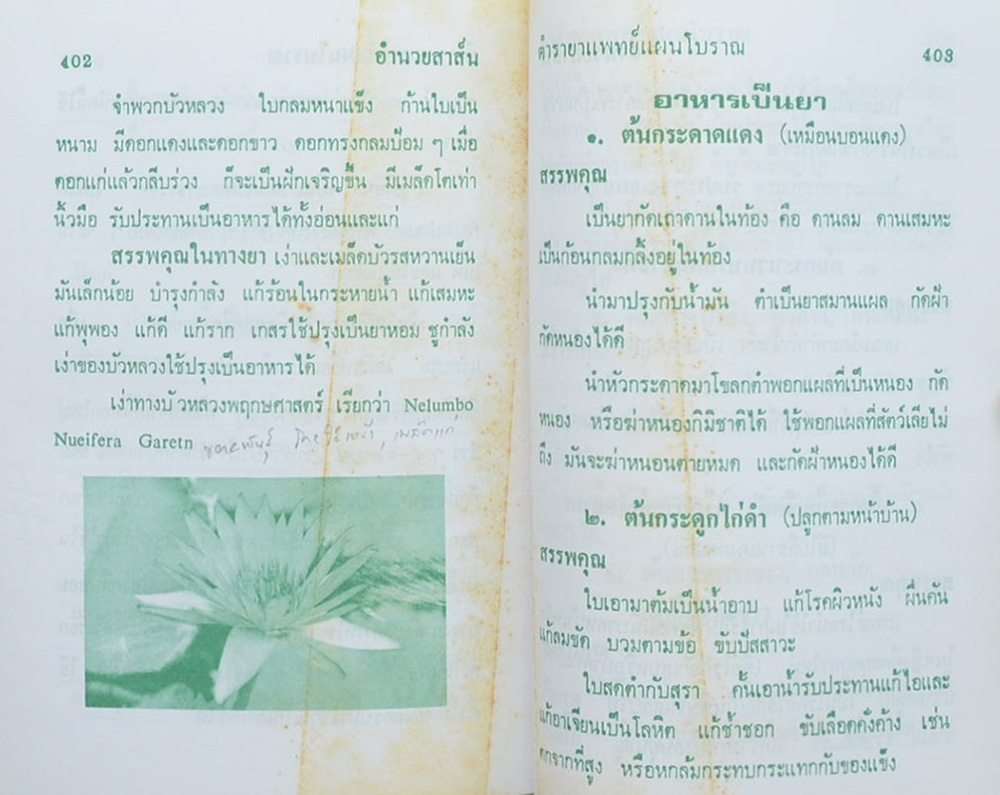 402
อำนวยสาส์น
จำพวกบัวหลวง ใบกลมหนาแข็ง ก้านใบเป็น
หนาม มีดอกแดงและดอกขาว ดอกทรงกลมป้อม ๆ เมื่อ
ดอกแก่แล้วกลีบร่วง ก็จะเป็นฝักเจริญขึ้น มีเมล็ดโตเท่า
นิ้วมือ รับประทานเป็นอาหารได้ทั้งอ่อนและแก่
สรรพคุณในทางยา เง่าและเมล็ดบัวรสหวานเย็น
มันเล็กน้อย บำรุงกำลัง แก้ร้อนในกระหายน้ำ แก้เสมหะ
แก้พุพอง แก้ดี แก้ราก เกสรใช้ปรุงเป็นยาหอม ชูกำลัง
เง่าของบัวหลวงใช้ปรุงเป็นอาหารได้
เง่าทางบัวหลวงพฤกษศาสตร์ เรียกว่า Nelumbo
Nueifera Garetn ขยายพันธุ์ โดยใช้เหง้า, เมล็ดแก่
ตำรายาแพทย์แผนโบราณ
403
อาหารเป็นยา
๑. ต้นกระดาดแดง (เหมือนบอนแดง)
สรรพคุณ
เป็นยากัดเถาดานในท้อง คือ ดานลม ดานเสมหะ
เป็นก้อนกลมกลิ้งอยู่ในท้อง
นำมาปรุงกับน้ำมัน ตำเป็นยาสมานแผล กัดฝ้า
กัดหนองได้ดี
นำหัวกระดาดมาโขลกตำพอกแผลที่เป็นหนอง กัด
หนอง หรือฆ่าหนองกิมิชาติได้ ใช้พอกแผลที่สัตว์เลียไม่
ถึง มันจะฆ่าหนอนตายหมด และกัดฝ้าหนองได้ดี
๒. ต้นกระดูกไก่ดำ (ปลูกตามหน้าบ้าน)
สรรพคุณ
ใบเอามาต้มเป็นน้ำอาบ แก้โรคผิวหนัง ผื่นคัน
แก้ลมขด บวมตามข้อ ขับปัสสาวะ
ใบสดตำกับสุรา คั้นเอาน้ำรับประทานแก้ไอและ
แก้อาเจียนเป็นโลหิต แก้ช้ำชอก ขับเลือดคั่งค้าง เช่น
ตกจากที่สูง หรือหกล้มกระทบกระแทกกับของแข็ง